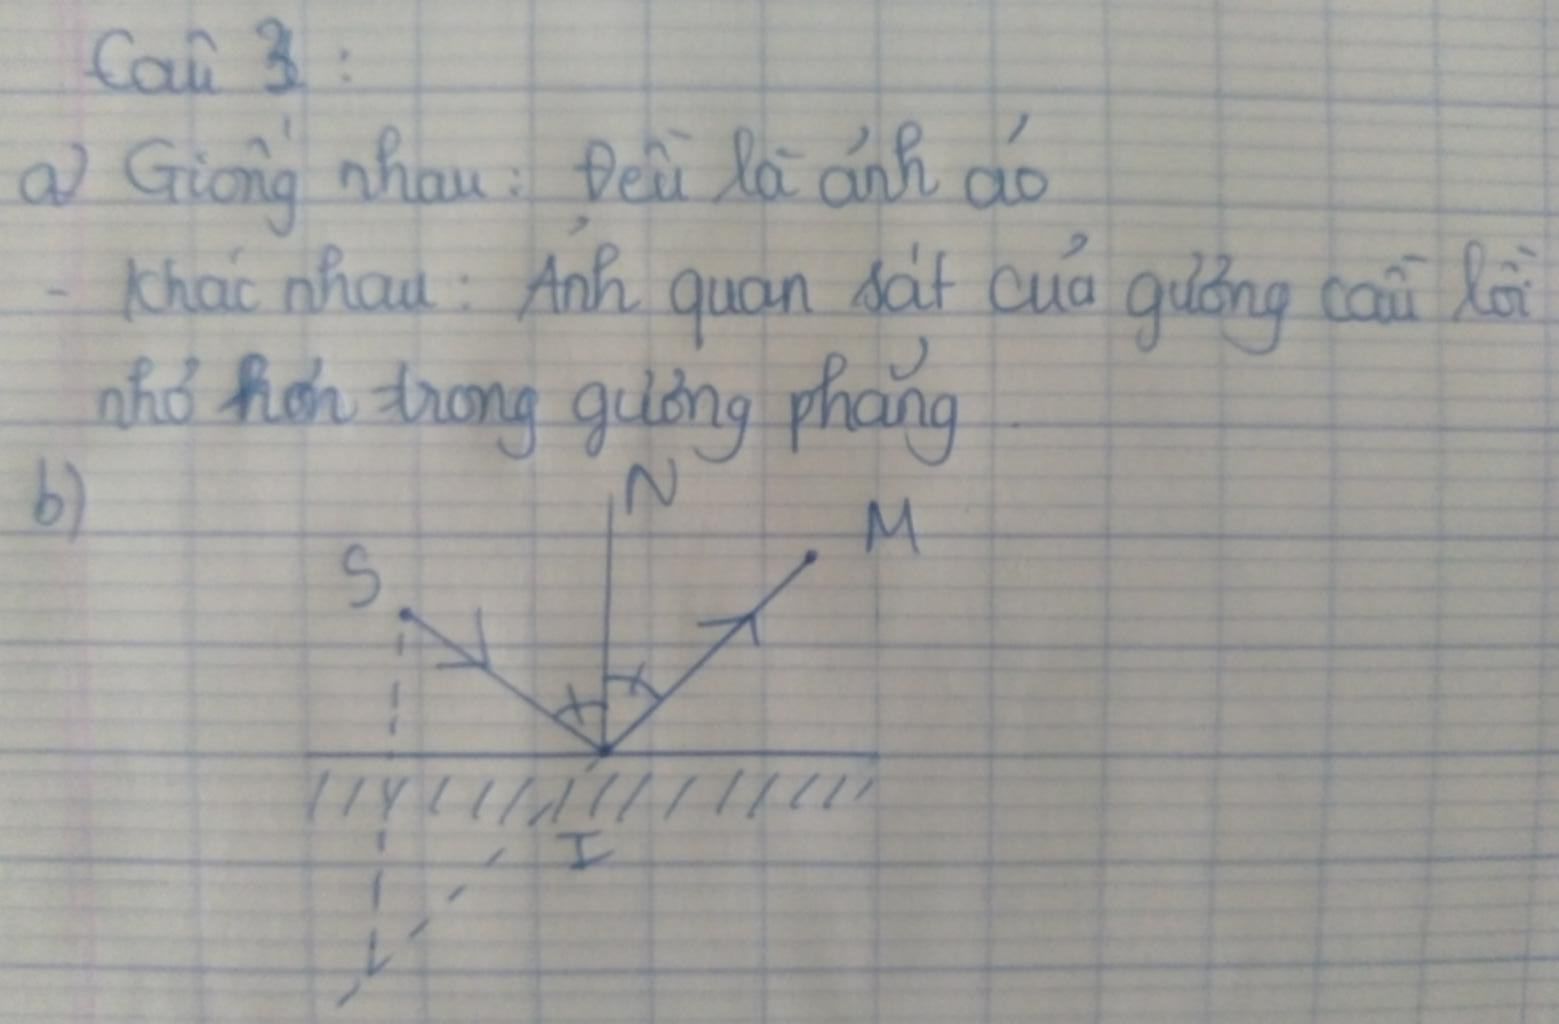 Câu 3:
a) Giống nhau: Đều là ảnh ảo
- Khác nhau: Ảnh quan sát của gương cầu lồi
nhỏ hơn trong gương phẳng.
b)
N
M
S
I